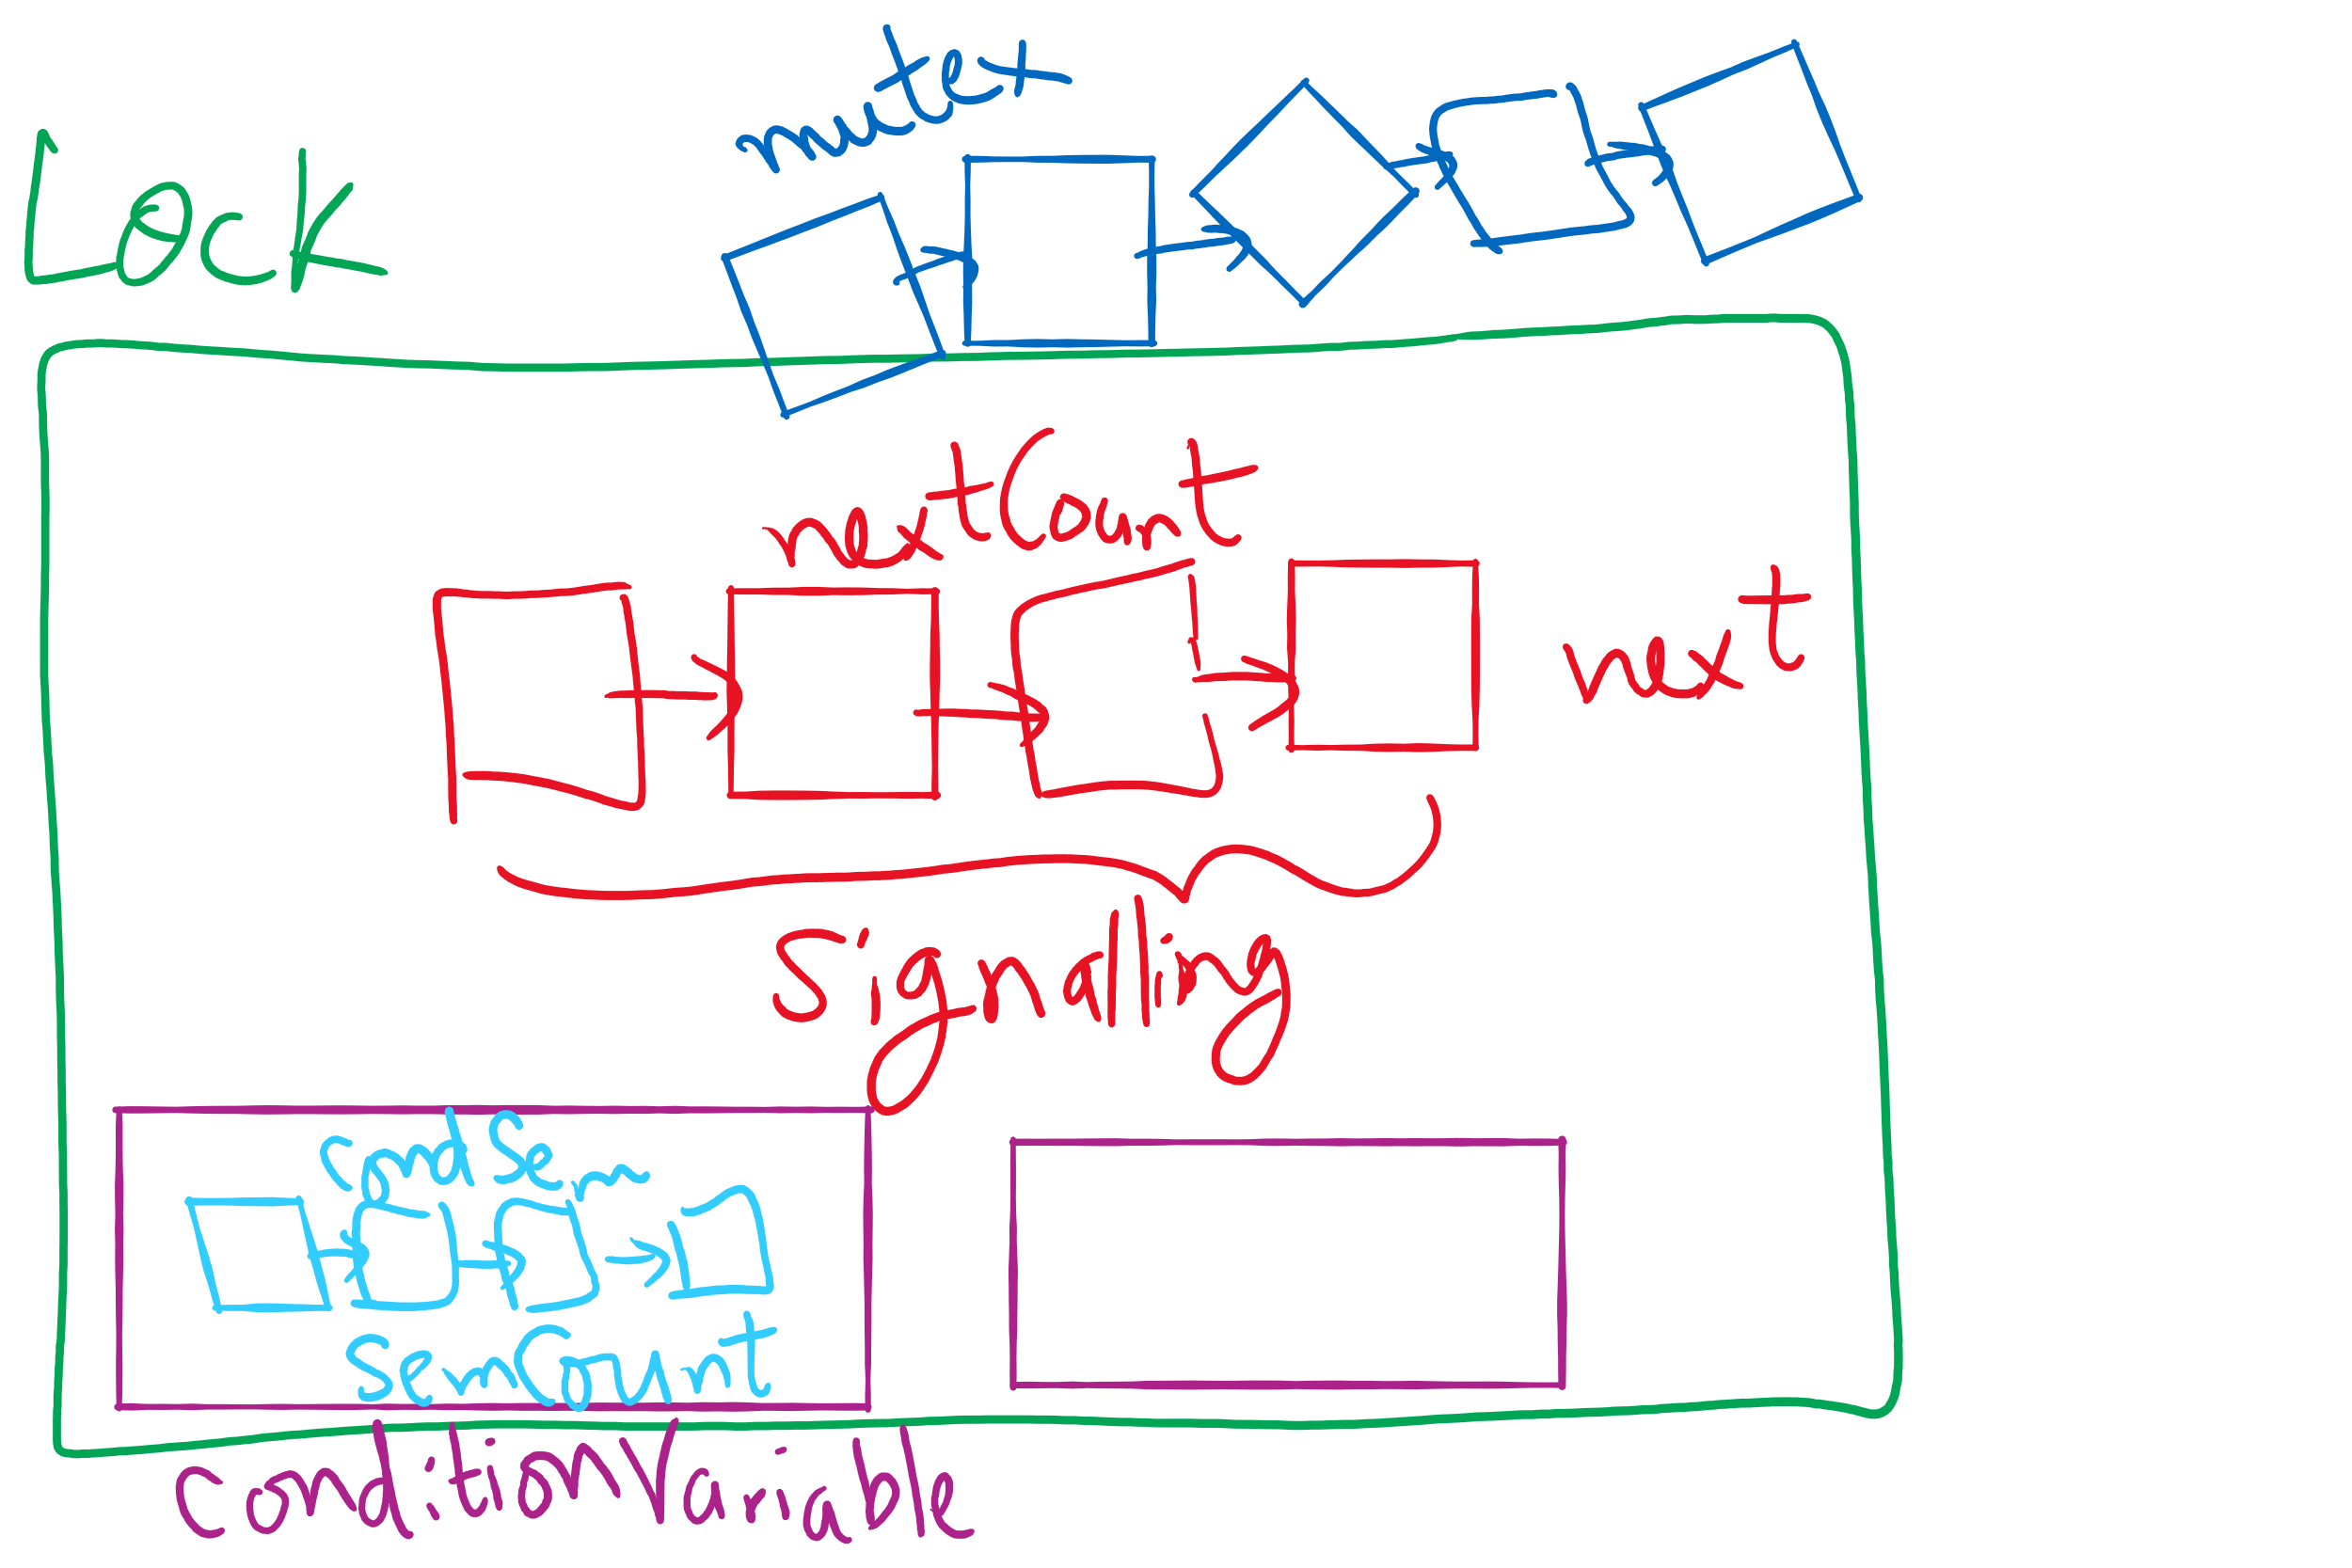 mutex
Lock
nextCount
next
Signalling
CondSem
SemCount
ConditionVariable